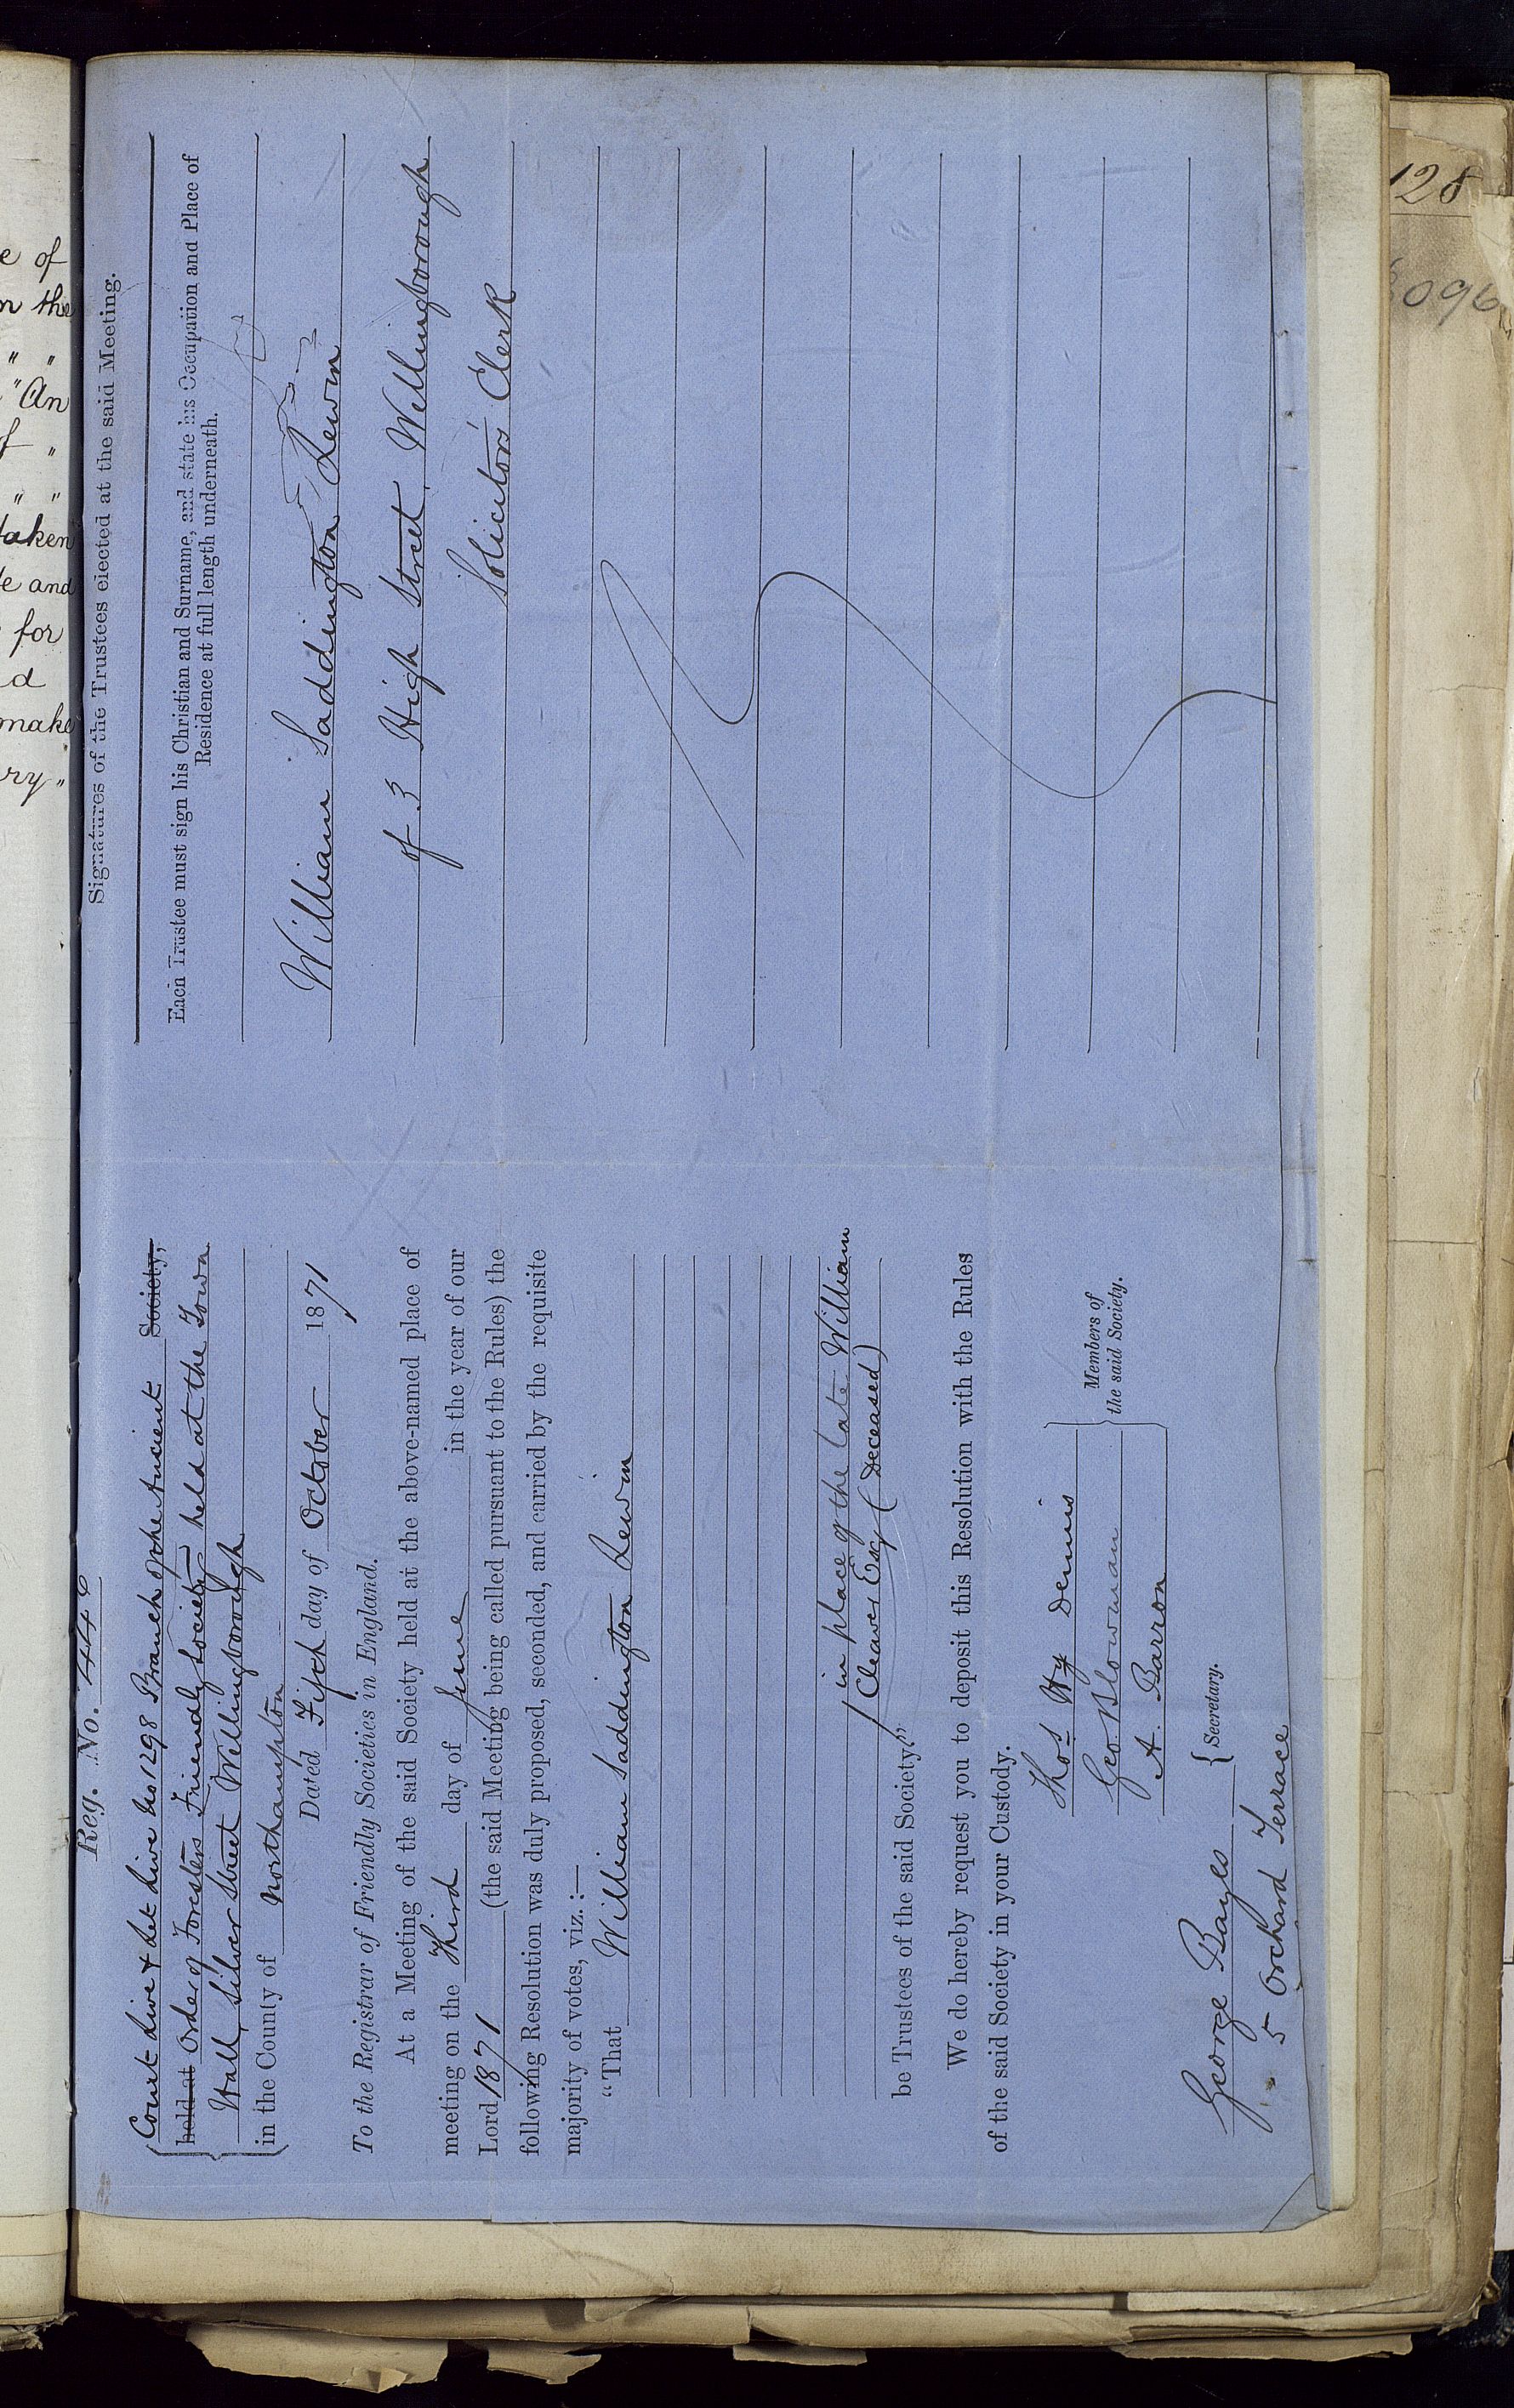 Reg. No. 449
Court Live & Let Live No 1298 Branch of the Ancient Society,
held at Order of Foresters Friendly Society held at the Town
Hall, Silver Street Wellingborough
in the County of Northampton
Dated Fifth day of October 1871
To the Registrar of Friendly Societies in England.
At a Meeting of the said Society held at the above-named place of
meeting on the Third day of June in the year of our
Lord 1871 (the said Meeting being called pursuant to the Rules) the
following Resolution was duly proposed, seconded, and carried by the requisite
majority of votes, viz.:—
"That William Saddington Lewin
in place of the late William
Cleaver Esq (Deceased)
be Trustees of the said Society."
We do hereby request you to deposit this Resolution with the Rules
of the said Society in your Custody.
Thos Hy Dennis
Geo Blowman
A. Barron
Members of
the said Society.
George Bayes Secretary.
5 Orchard Terrace
Signatures of the Trustees elected at the said Meeting.
Each Trustee must sign his Christian and Surname, and state his Occupation and Place of
Residence at full length underneath.
William Saddington Lewin
of 3 High Street Wellingborough
Solicitors Clerk
e of
or the
" "
"An
f "
" "
taken
te and
for
d
make
ry "
128
096